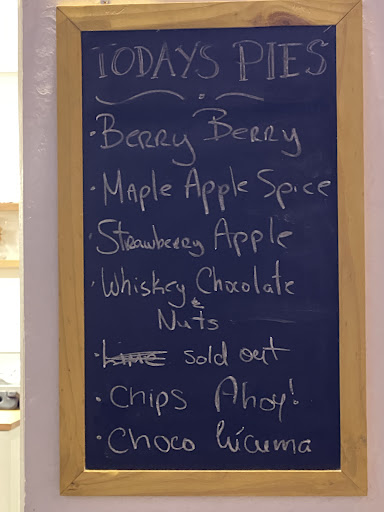 TODAYS PIES
· Berry Berry
· Maple Apple Spice
· Strawberry Apple
· Whiskey Chocolate
& Nuts
· Lime sold out
· Chips Ahoy!
· Choco lúcuma